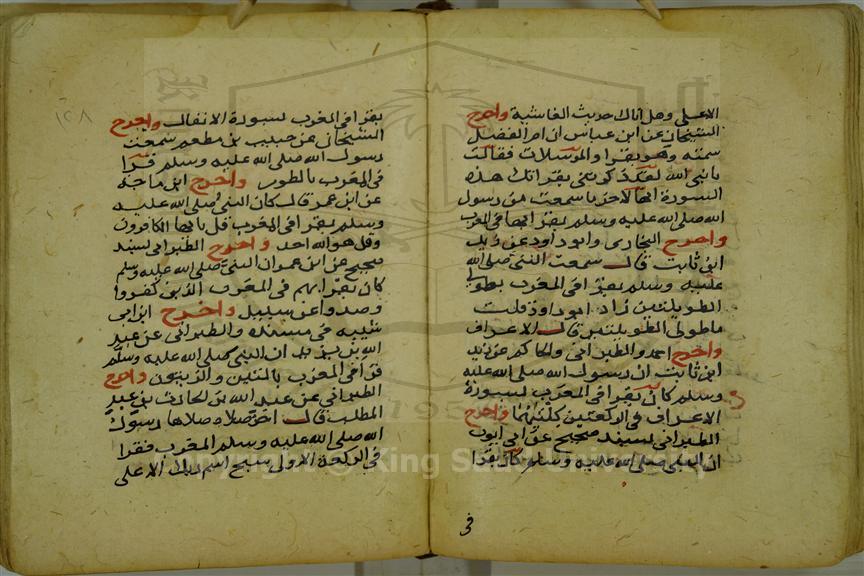 الاعلى وهل اتاك حديث الغاشية واخرج
الشيخان عن ابن عباس ان ام الفضل
سمعته وهو يقرا والمرسلات فقالت
يا بني الله لقد ذكرتني بقراتك هذه
السورة انها لاخر ما سمعت من رسول
الله صلى الله عليه وسلم يقرا بها في المغرب
واخرج البخاري وابو داود عن زيد
ابن ثابت قال سمعت النبي صلى الله
عليه وسلم يقرا في المغرب بطولي
الطوليتين زاد ابو داود قلت
ما طولي الطوليتين قال الاعراف
واخرج احمد والطبراني والحاكم عن زيد
ابن ثابت ان رسول الله صلى الله عليه
وسلم كان يقرا في المغرب بسورة
الاعراف في الركعتين كلتيهما واخرج
الطبراني بسند صحيح عن ابي ايوب
ان النبي صلى الله عليه وسلم كان يقرا
في
١٢٨
يقرا في المغرب بسورة الانفال واخرج
الشيخان عن جبير بن مطعم سمعت
رسول الله صلى الله عليه وسلم قرا
في المغرب بالطور واخرج ابن ماجة
عن ابن عمر قال كان النبي صلى الله عليه
وسلم يقرا في المغرب قل يا ايها الكافرون
وقل هو الله احد واخرج الطبراني بسند
صحيح عن ابن عمر ان النبي صلى الله عليه وسلم
كان يقرا بهم في المغرب الذين كفروا
وصدوا عن سبيل واخرج ابن ابي
شيبه في مسنده والطبراني عن عبد
الله بن يزيد ان النبي صلى الله عليه وسلم
قرا في المغرب بالتين والزيتون واخرج
الطبراني عن عبد الله بن الحارث بن عبد
المطلب قال اخر صلاة صلاها رسول
الله صلى الله عليه وسلم المغرب فقرا
في الركعة الاولى سبح اسم ربك الاعلى
Copyright © King Saud University
1957